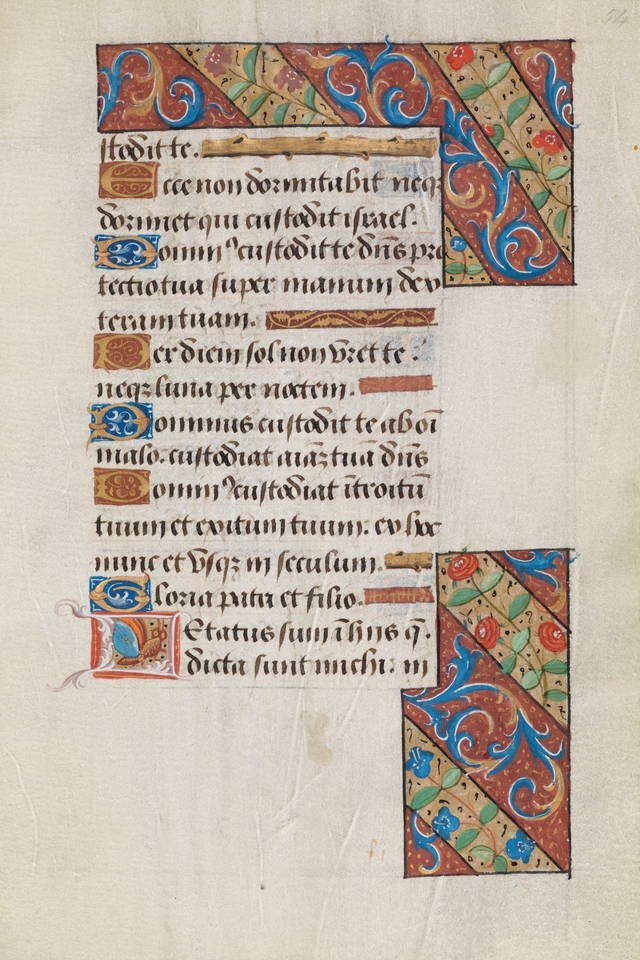 54
stodit te.
Ecce non dormitabit neqz
dormiet qui custodit israel.
Domin9 custodit te dñs pro
tectio tua super manum dex
teram tuam.
Per diem sol non vret te:
neqz luna per noctem.
Dominus custodit te ab oī
malo: custodiat aiāz tuā dñs
Domin9 custodiat ītroitū
tuum et exitum tuum: ex hoc
nunc et vsqz in seculum.
Gloria patri et filio.
LEtatus sum ī hiis q̄
dicta sunt michi: in